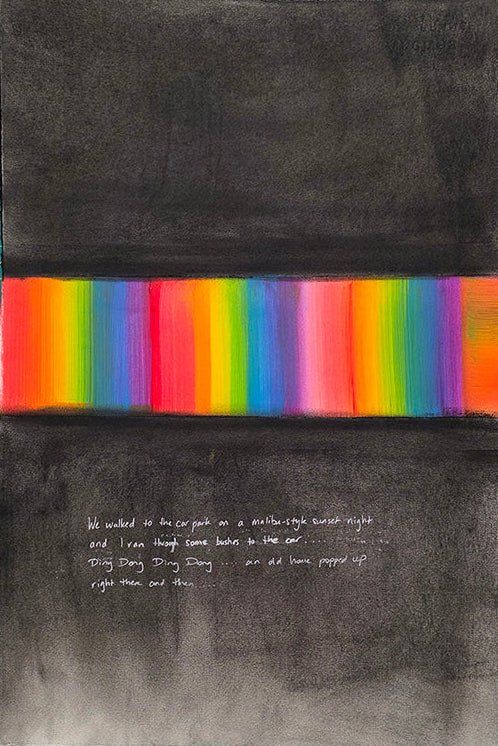 We walked to the car park on a malibu-style sunset night
and I ran through some bushes to the car....
Ding Dong Ding Dong .... an old home popped up
right there and then ...